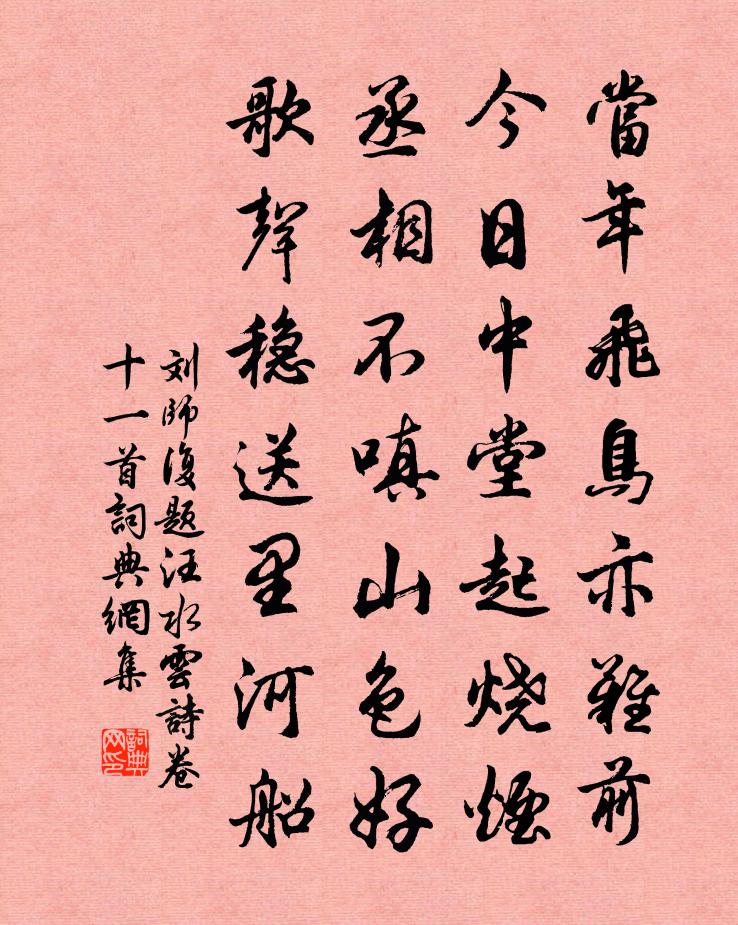 當年飛鳥亦難前
今日中堂起烧煙
丞相不嗔山色好
歌聲稳送里河船
刘師復题汪水雲詩卷
十一首詞典網集
詞典网印